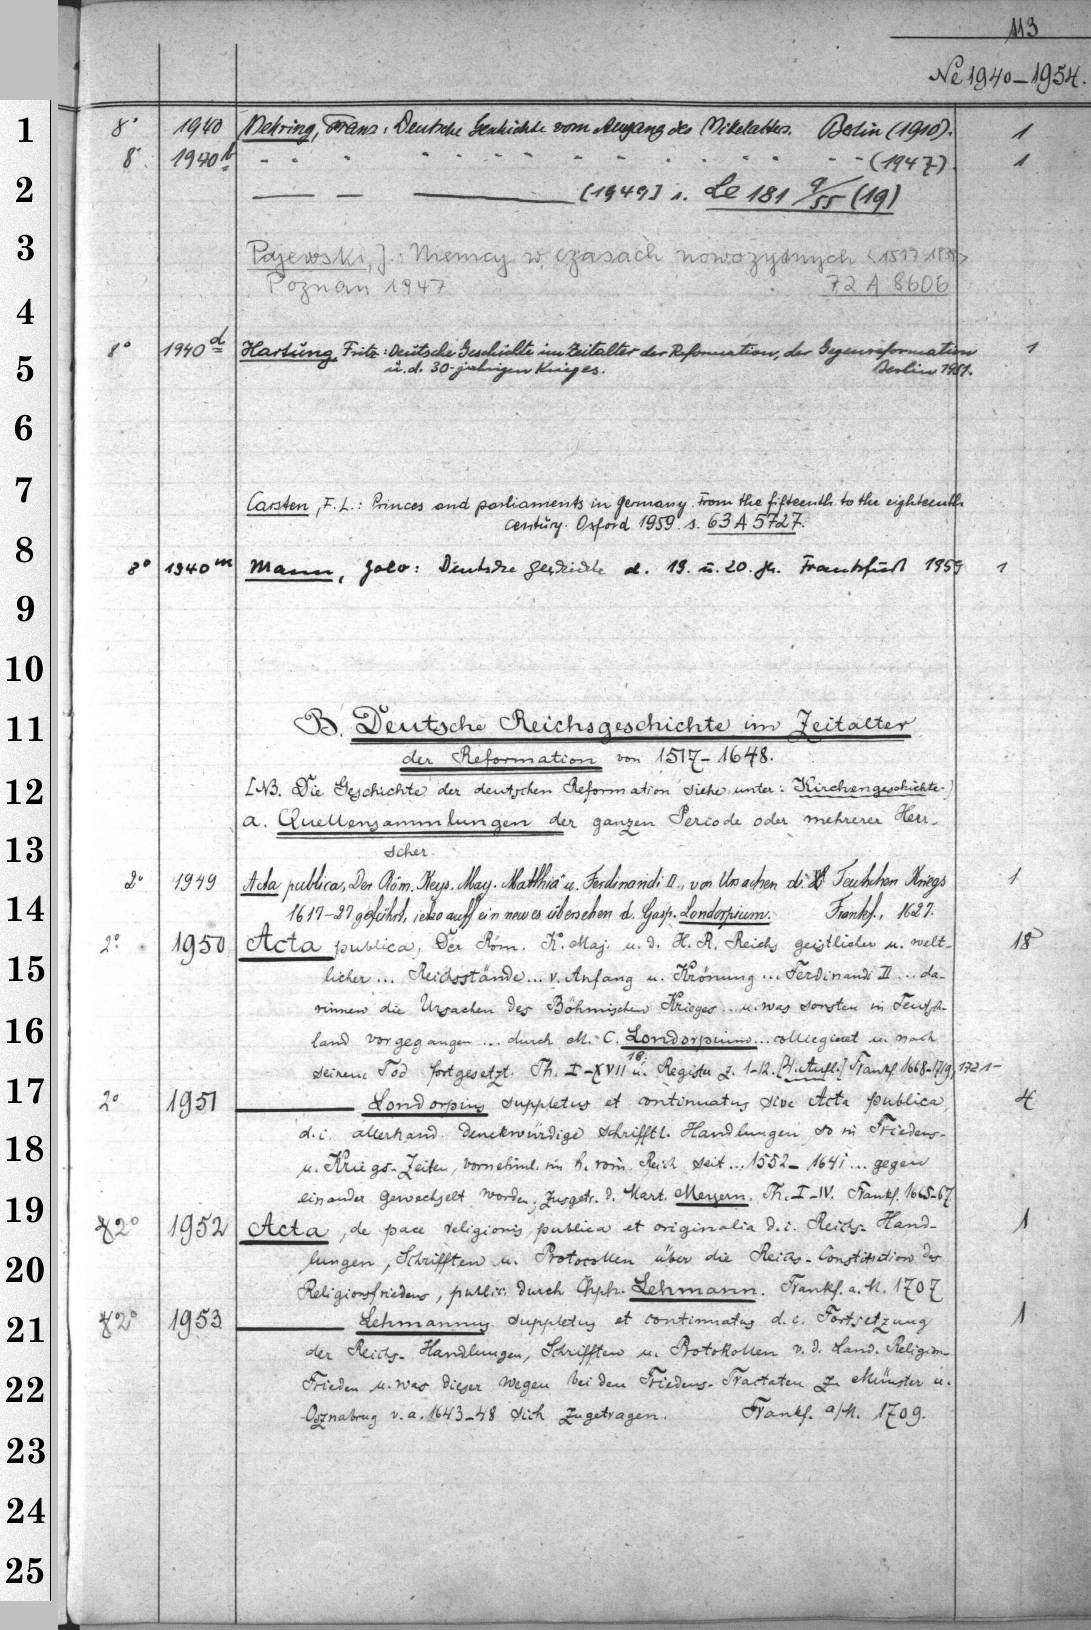 113
Ne 1940-1954.
1
8° 1940 Mehring, Franz: Deutsche Geschichte vom Ausgang des Mittelalters. Berlin (1910). 1
8° 1940b - - - - - - - - - - - (1947). 1
2
— — — (1949) s. Le 181 9/55 (19)
3
Pajewski, J.: Niemcy w czasach nowożytnych (1517-1939)
Poznań 1947 72 A 8606
4
8° 1940d Hartung, Fritz: Deutsche Geschichte im Zeitalter der Reformation, der Gegenreformation 1
5
u. d. 30-jährigen Krieges. Berlin 1951.
6
7
Carsten, F. L.: Princes and parliaments in Germany. From the fifteenth to the eighteenth
century. Oxford 1959. s. 63 A 5727.
8
8° 1940m Mann, Golo: Deutsche Geschichte d. 19. u. 20. Jh. Frankfurt 1959 1
9
10
11
B. Deutsche Reichsgeschichte im Zeitalter
der Reformation von 1517-1648.
12
[NB. Die Geschichte der deutschen Reformation siehe unter: Kirchengeschichte.)
a. Quellensammlungen der ganzen Periode oder mehrerer Herr-
13
scher.
2° 1949 Acta publica, Der Röm. Keys. May. Matthiä u. Ferdinandi II., von Ursachen Teutschen Kriegs 1
14
1617-27 geführt, jetzo auff ein newes übersehen d. Gasp. Londorpium. Frankf., 1627.
2° 1950 Acta publica, Der Röm. K. Maj. u. d. H. R. Reichs geistlicher u. welt- 18
15
licher ... Reichsstände ... v. Anfang u. Krönung ... Ferdinandi II ... da-
rinnen die Ursachen des Böhmischen Krieges ... u. was sonsten in Teutsch-
16
land vorgegangen ... durch M. C. Londorpium ... colliegieret u. nach
seinem Tod fortgesetzt. Th. I-XVII 18. u. Register z. 1-12. [4. Aufl.] Frankf. 1668-1719, 1721-
17
2° 1951 — Londorpius suppletus et continuatus sive Acta publica 4
d. i. allerhand denckwürdige schrifftl. Handlungen so in Friedens-
18
u. Kriegs-Zeiten, vornehml. im h. röm. Reich seit ... 1552-1641 ... gegen
einander gewechselt worden; zusgetr. d. Mart. Meyern. Th. I-IV. Frankf. 1665-67
19
2° 1952 Acta, de pace religionis, publica et originalia d. i. Reichs-Hand- 1
20
lungen, Schrifften u. Protocollen über die Reichs-Constitution des
Religionsfriedens, public. durch Chph. Lehmann. Frankf. a. M. 1707
21
2° 1953 — Lehmannus suppletus et continuatus d. i. Fortsetzung 1
der Reichs-Handlungen, Schrifften u. Protokollen v. d. Land. Religion-
22
Frieden u. was dieser wegen bei den Friedens-Tractaten zu Münster u.
Osznabrug v. a. 1643-48 sich zugetragen. Frankf. a/M. 1709.
23
24
25